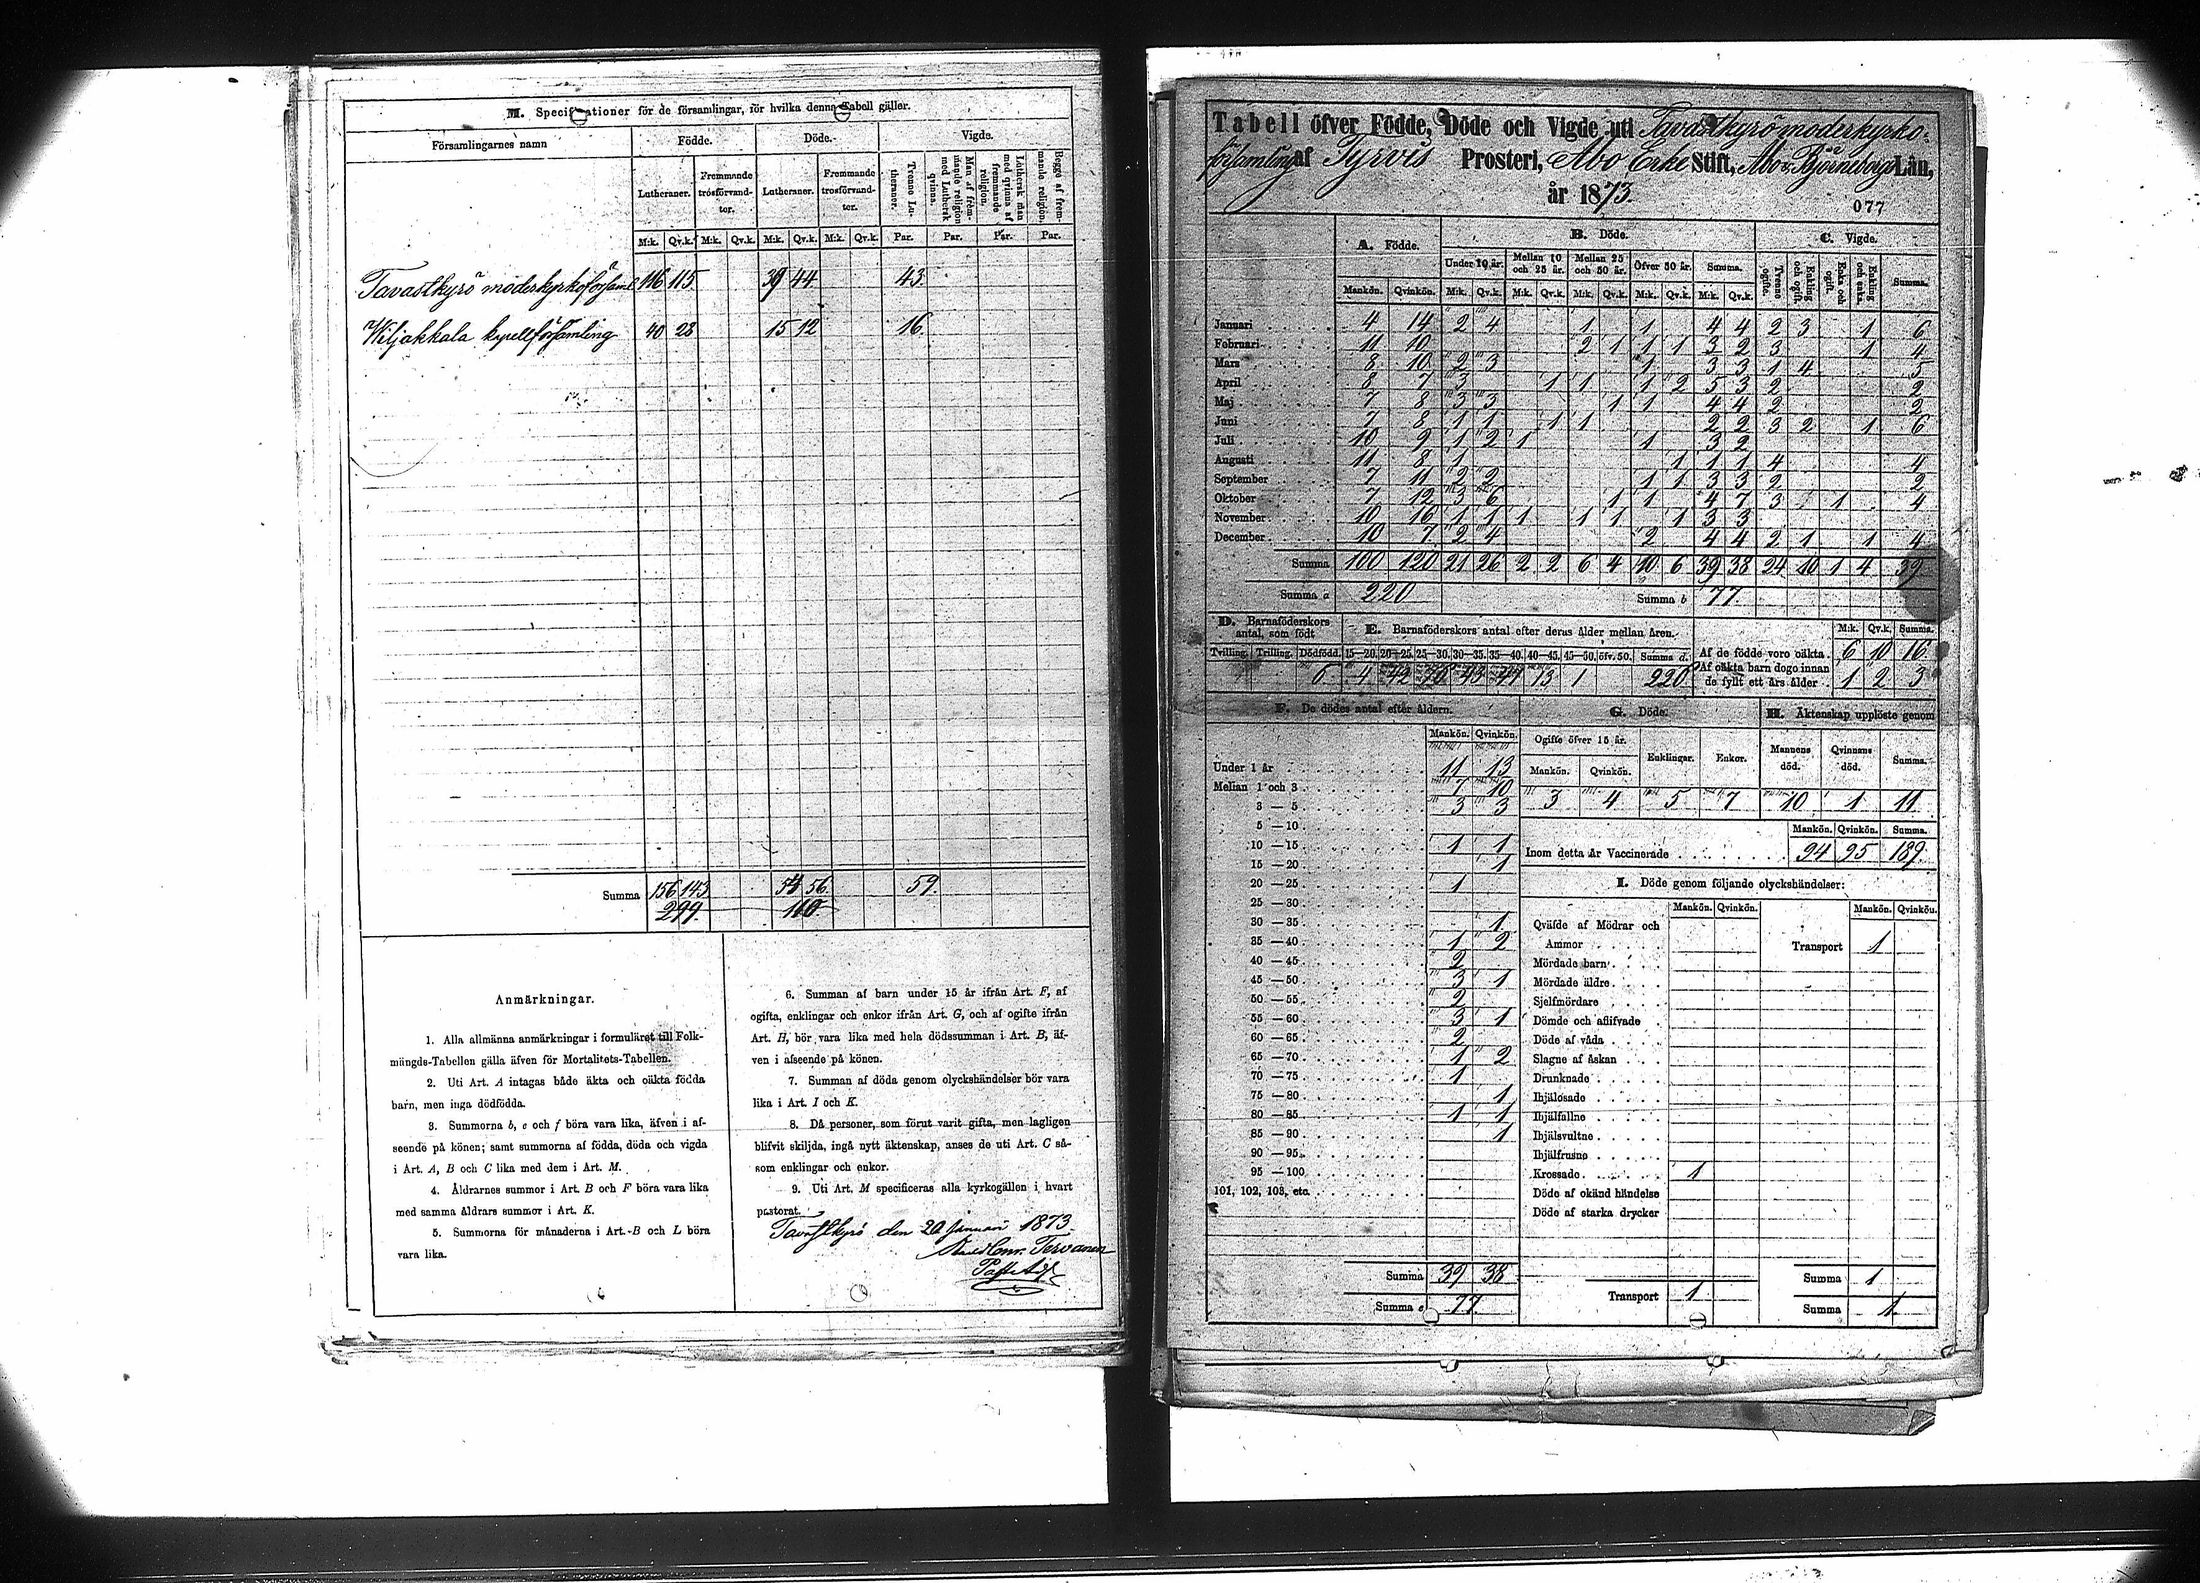 M. Specifikationer för de församlingar, för hvilka denna Tabell gäller.
Församlingarnes namn
Födde. Döde. Vigde.
Lutheraner. Fremmande trosförvand-ter. Lutheraner. Fremmande trosförvand-ter. Trenne Lu-theraner. Man af frem-mande religion med Luthersk qvinna. Luthersk man med qvinna af fremmande religion. Begge af frem-mande religion.
M:k. Qv.k. M:k. Qv.k. M:k. Qv.k. M:k. Qv.k. Par. Par. Par. Par.
Tavastkyrö moderkyrkoförsaml. 116 115 39 44 43
Wiljakkala kapellförsamling 40 28 15 12 16
Summa 156 143 54 56 59
299 110
Anmärkningar.
1. Alla allmänna anmärkningar i formuläret till Folk-
mängds-Tabellen gälla äfven för Mortalitets-Tabellen.
2. Uti Art. A intagas både äkta och oäkta födda
barn, men inga dödfödda.
3. Summorna b, e och f böra vara lika, äfven i af-
seende på könen; samt summorna af födda, döda och vigda
i Art. A, B och C lika med dem i Art. M.
4. Åldrarnes summor i Art. B och F böra vara lika
med samma åldrars summor i Art. K.
5. Summorna för månaderna i Art. B och L böra
vara lika.
6. Summan af barn under 15 år ifrån Art. F, af
ogifta, enklingar och enkor ifrån Art. G, och af ogifte ifrån
Art. H, bör vara lika med hela dödssumman i Art. B, äf-
ven i afseende på könen.
7. Summan af döda genom olyckshändelser bör vara
lika i Art. I och K.
8. Då personer, som förut varit gifta, men lagligen
blifvit skiljda, ingå nytt äktenskap, anses de uti Art. C så-
som enklingar och enkor.
9. Uti Art. M specificeras alla kyrkogällen i hvart
pastorat.
Tavastkyrö den 20 Januari 1873.
Tervonen
Tabell öfver Födde, Döde och Vigde uti Tavastkyrö moderkyrko-
församling af Tyrvis Prosteri, Åbo Erke Stift, Åbo o. Björneborgs Län,
år 1873.
077
A. Födde. B. Döde. C. Vigde.
Under 10 år. Mellan 10 och 25 år. Mellan 25 och 50 år. Öfver 50 år. Summa. Trenne ogifte. Enkling och ogift. Enka och ogift. Enkling och enka. Summa.
Mankön. Qvinkön. M:k. Qv.k. M:k. Qv.k. M:k. Qv.k. M:k. Qv.k. M:k. Qv.k.
Januari 4 14 2 4 1 1 4 4 2 3 1 6
Februari 11 10 2 1 1 1 3 2 3 1 4
Mars 8 10 2 3 1 3 3 1 4 5
April 8 7 3 1 1 1 2 5 3 2 2
Maj 7 8 3 3 1 1 4 4 2 2
Juni 7 8 1 1 1 1 2 2 3 2 1 6
Juli 10 9 1 2 1 1 3 2
Augusti 11 8 1 1 1 1 4 4
September 7 11 2 2 1 1 3 3 2 2
Oktober 7 12 3 6 1 1 4 7 3 1 4
November 10 16 1 1 1 1 1 1 3 3
December 10 7 2 4 2 4 4 2 1 1 4
Summa 100 120 21 26 2 2 6 4 10 6 39 38 24 10 1 4 39
Summa a 220 Summa b 77
D. Barnaföderskors antal, som födt
E. Barnaföderskors antal efter deras ålder mellan åren.
M:k. Qv.k. Summa.
Tvilling. Trilling. Dödfödd. 15—20. 20—25. 25—30. 30—35. 35—40. 40—45. 45—50. öfv. 50. Summa d.
6 4 42 70 43 47 13 1 220
Af de födde voro oäkta. 6 10 16
Af oäkta barn dogo innan de fyllt ett års ålder 1 2 3
F. De dödes antal efter åldern.
Mankön. Qvinkön.
Under 1 år 11 13
Mellan 1 och 3 7 10
3 — 5 3 3
5 —10
10 —15 1 1
15 —20 1
20 —25 1
25 —30
30 —35 1
35 —40 1 2
40 —45 2
45 —50 3 1
50 —55 2
55 —60 3 1
60 —65 2
65 —70 1 2
70 —75 1
75 —80 1
80 —85 1 1
85 —90 1
90 —95
95 —100
101, 102, 103, etc.
Summa 39 38
Summa e 77
G. Döde.
Ogifte öfver 15 år. Enklingar. Enkor.
Mankön. Qvinkön.
3 4 5 7
H. Äktenskap upplöste genom
Mannens död. Qvinnans död. Summa.
10 1 11
Mankön. Qvinkön. Summa.
Inom detta år Vaccinerade 94 95 189
I. Döde genom följande olyckshändelser:
Mankön. Qvinkön. Mankön. Qvinkön.
Qväfde af Mödrar och
Ammor
Transport 1
Mördade barn
Mördade äldre
Sjelfmördare
Dömde och aflifvade
Döde af våda
Slagne af åskan
Drunknade
Ihjälosade
Ihjälfallne
Ihjälsvultne
Ihjälfrusne
Krossade 1
Döde af okänd händelse
Döde af starka drycker
Transport 1
Summa 1
Summa 1